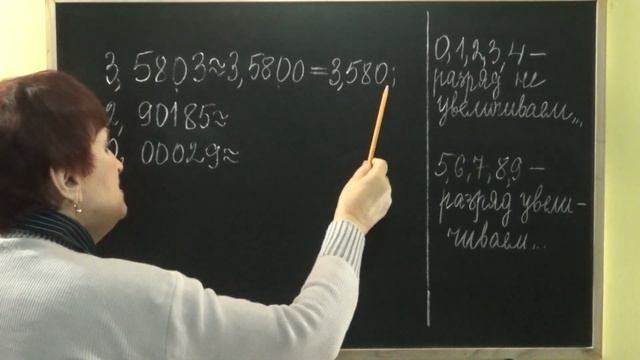 3, 5803≈3, 5800=3,580;
, 90185≈
, 00029≈
0,1,2,3,4 –
разряд не
увеличиваем...
5,6,7,8,9 –
разряд увели-
чиваем...